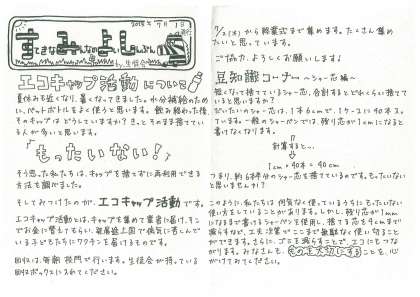 2015年7月1日
すてきなみんなのよいしんぶん
by 生徒会
エコキャップ活動について
夏休みも近くなり、暑くなってきました。水分補給のため
に、ペットボトルをよく使うと思います。飲み終わった後、
そのキャップはどうしていますか？きっとそのまま捨てている
人が多いと思います。
「もったいない！」
そう思った私たちは、キャップを捨てずに再利用できる
方法を調べました。
そしてみつけたのが、エコキャップ活動です。
エコキャップ活動とは、キャップを集めて業者に届け、そこで
お金に替えてもらい、発展途上国で病気に苦しんで
いる子どもたちにワクチンを届けるものです。
回収は、毎朝校門で行います。生徒会が持っている
回収ボックスに入れてください。
7/2(木)から終業式まで集めます。たくさん集め
たいと思っています。
ご協力、よろしくお願いします♩
豆知識コーナー 〜シャー芯編〜
短くなって捨てているシャー芯、合計するとどれくらい捨てて
いると思いますか？
だいたいのシャー芯は、1本6cmで、1ケースに40本入っ
ています。一般のシャーペンでは、残り芯が1cmになると
書けなくなります。
計算すると…
1cm×40本＝40cm
つまり、約6本半分のシャー芯を捨てているのです。もったいない
と思いませんか？
このように、私たちは何気なく使っているうちにもったいない
使い方をしていることがあります。しかし、残り芯が1mm
になるまで書けるシャーペンを使用し、捨てる芯を4cmまで
減らすなど、工夫次第でここまで無駄なく使い切ること
ができます。さらに、ゴミを減らすことで、エコにもつな
がります。みなさんも、ものを大切にすることを、心
がけてみてください。